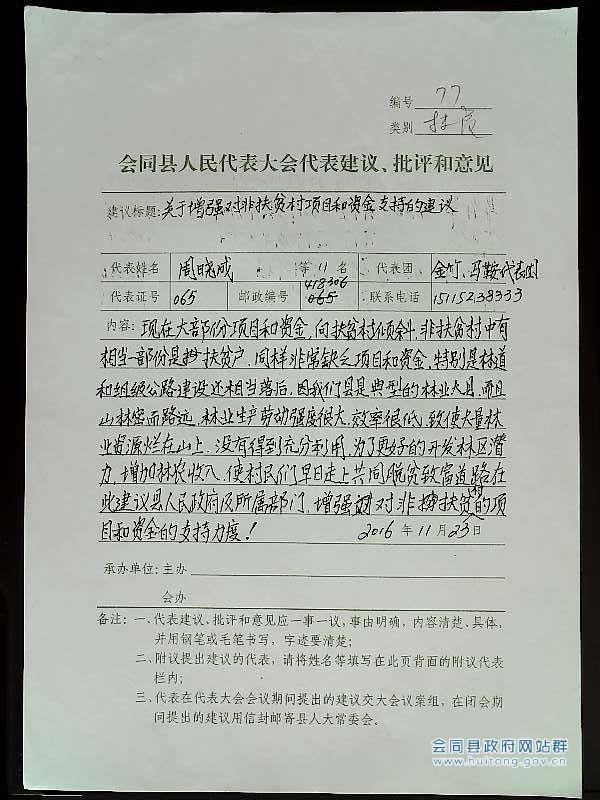 编号 77
类别
会同县人民代表大会代表建议、批评和意见
建议标题:关于增强对非扶贫村项目和资金支持的建议
代表姓名 周晓成 等11名 代表团 金竹、马鞍代表团
代表证号 065 邮政编号 418306 065 联系电话 15115238333
内容:现在大部份项目和资金,向扶贫村倾斜,非扶贫村中有
相当一部份是 扶贫户,同样非常缺乏项目和资金,特别是林道
和组级公路建设还相当落后,因我们县是典型的林业大县,而且
山林密而路远,林业生产劳动强度很大,效率很低,致使大量林
业资源烂在山上,没有得到充分利用,为了更好的开发林区潜
力,增加林农收入,使村民们早日走上共同脱贫致富道路在
此建议县人民政府及所属部门,增强 对非 扶贫村的项
目和资金的支持力度!
2016年11月23日
承办单位:主办
会办
备注:一、代表建议、批评和意见应一事一议,事由明确,内容清楚、具体,
并用钢笔或毛笔书写,字迹要清楚;
二、附议提出建议的代表,请将姓名等填写在此页背面的附议代表
栏内;
三、代表在代表大会会议期间提出的建议交大会议案组,在闭会期
间提出的建议用信封邮寄县人大常委会。
会同县政府网站群
www.huitong.gov.cn